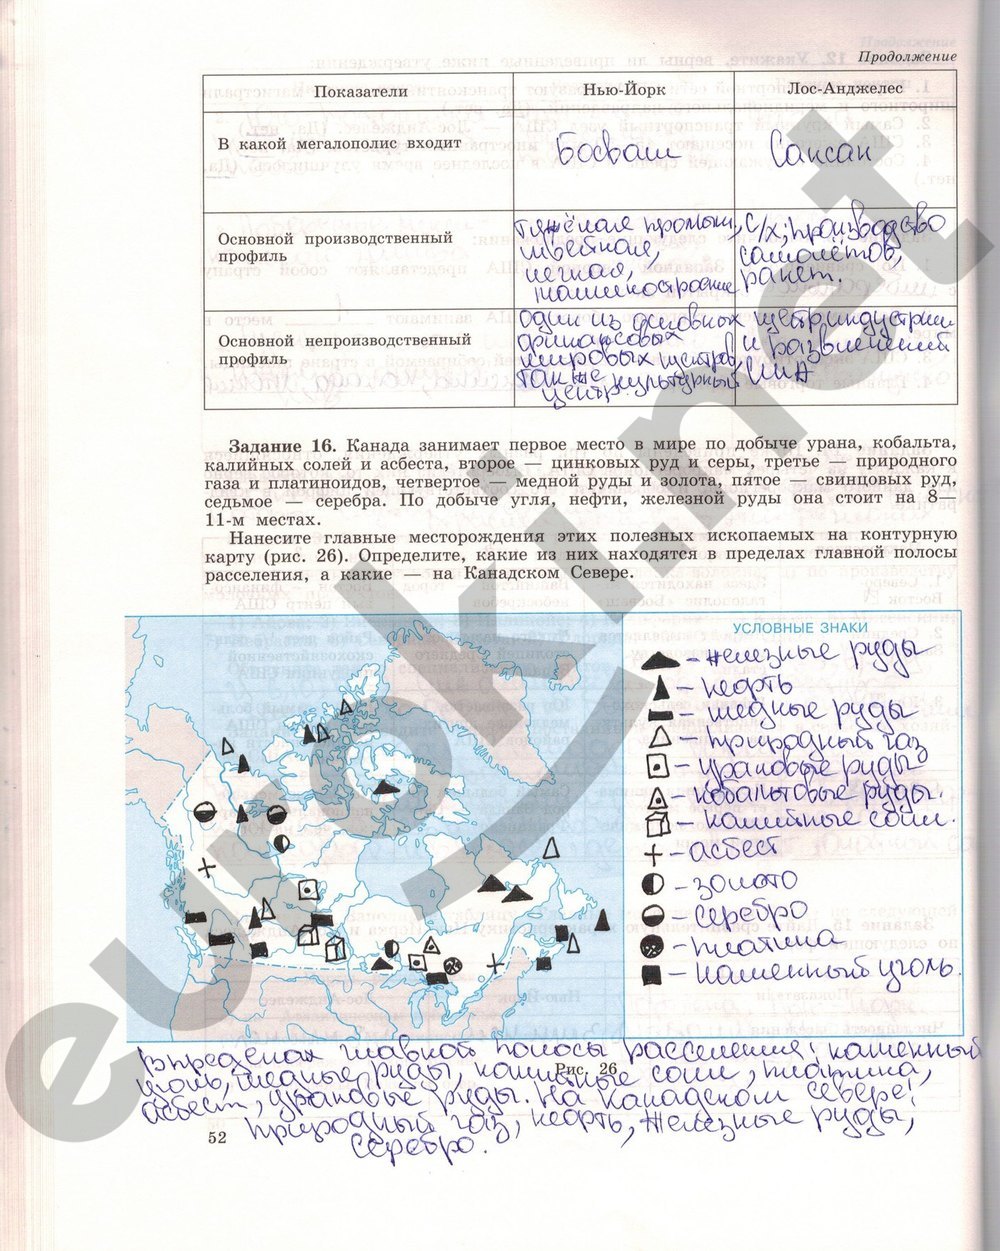 Продолжение
Показатели Нью-Йорк Лос-Анджелес
В какой мегалополис входит Босваш Сансан
Основной производственный профиль
тяжёлая промыш,
швейная,
легкая,
машиностроение
с/х; производство
самолётов,
ракет.
Основной непроизводственный профиль
один из основных
финансовых
мировых центров,
также
центр культурный
центр индустрии
и развлечений
США
Задание 16. Канада занимает первое место в мире по добыче урана, кобальта,
калийных солей и асбеста, второе — цинковых руд и серы, третье — природного
газа и платиноидов, четвертое — медной руды и золота, пятое — свинцовых руд,
седьмое — серебра. По добыче угля, нефти, железной руды она стоит на 8—
11-м местах.
Нанесите главные месторождения этих полезных ископаемых на контурную
карту (рис. 26). Определите, какие из них находятся в пределах главной полосы
расселения, а какие — на Канадском Севере.
УСЛОВНЫЕ ЗНАКИ
- железные руды
- нефть
- медные руды
- природный газ
- урановые руды
- кобальтовые руды.
- калийные соли.
- асбест
- золото
- серебро
- платина
- каменный уголь.
В пределах главной полосы расселения: каменный
уголь, медные руды, калийные соли, платина,
Рис. 26
асбест, урановые руды. На Канадском севере:
природный газ, нефть, железные руды,
серебро.
52
euroki.net